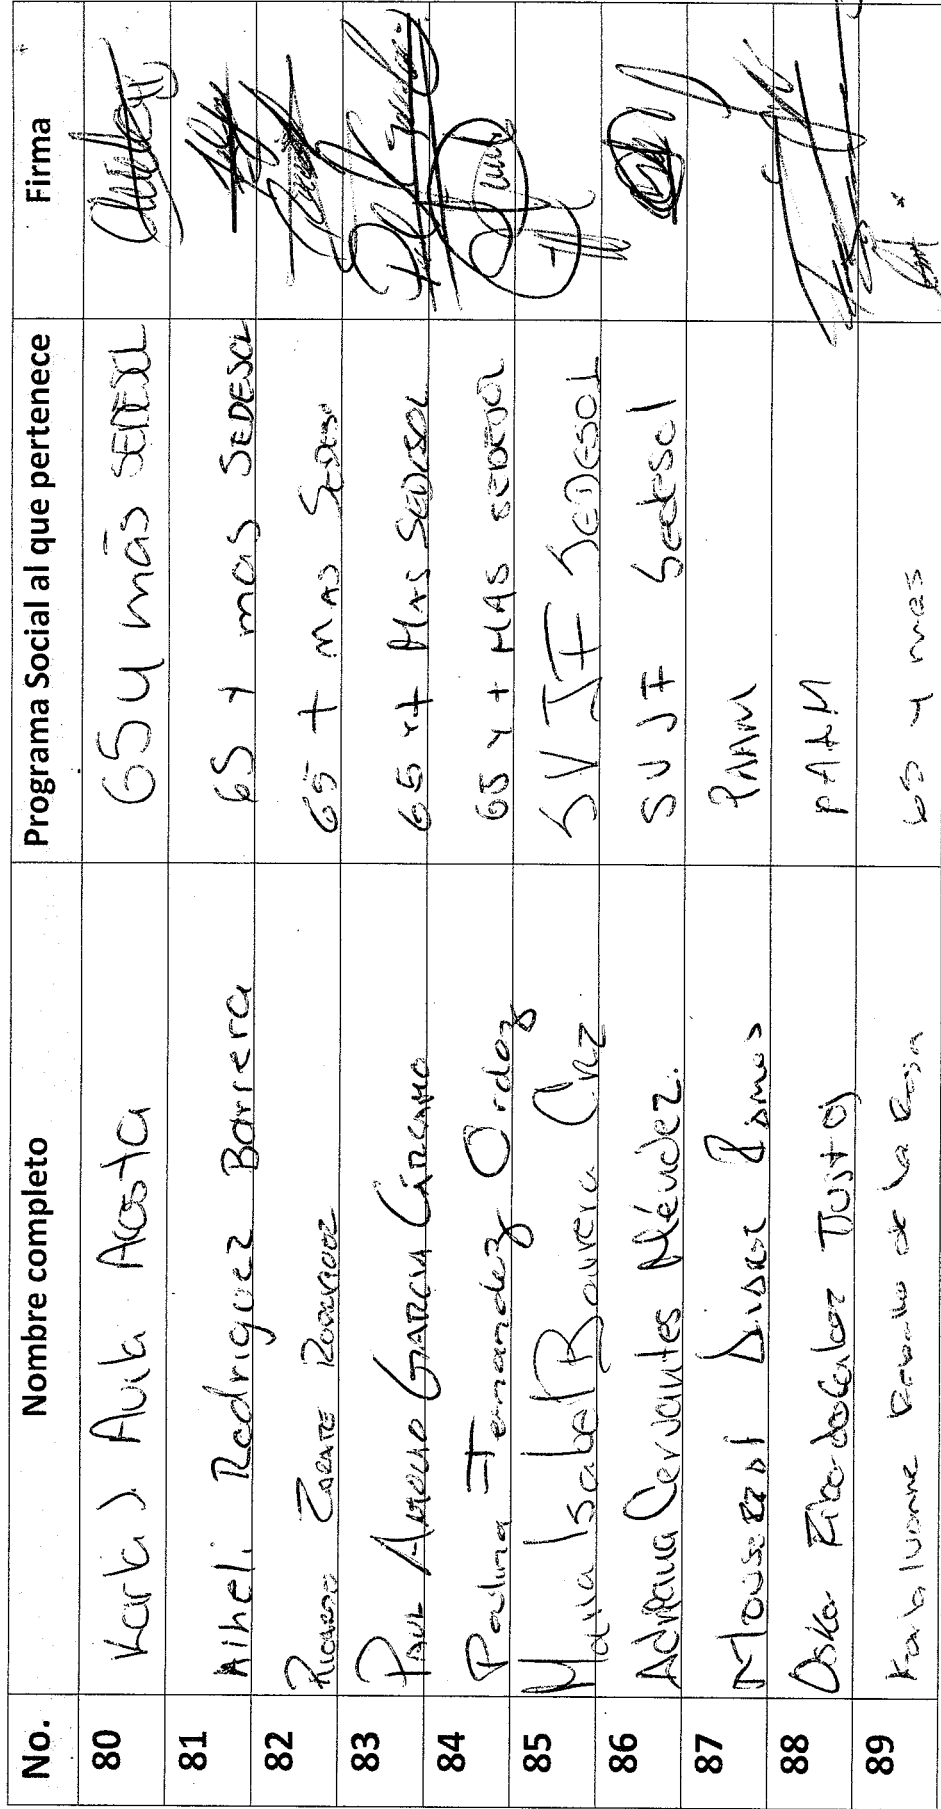 No. Nombre completo Programa Social al que pertenece Firma
80 Karla J Avila Acosta 65 y más SEDESOL
81 Aiheli Rodriguez Barrera 65 y mas SEDESOL
82 Ricardo Zarate Rodriguez 65 + mas SEDESOL
83 Paul Garcia Cárcamo 65 y + Mas SEDESOL
84 Paulina Fernandez Ordaz 65 y + MAS SEDESOL
85 Maria Isabel Bouvera Cruz SVJF SEDESOL
86 Adriana Cervantes Méndez. SVJF Sedesol
87 Ramos PAAM
88 Oskar PAAM
89 Karla Ivonne de la Rosa 65 y mas